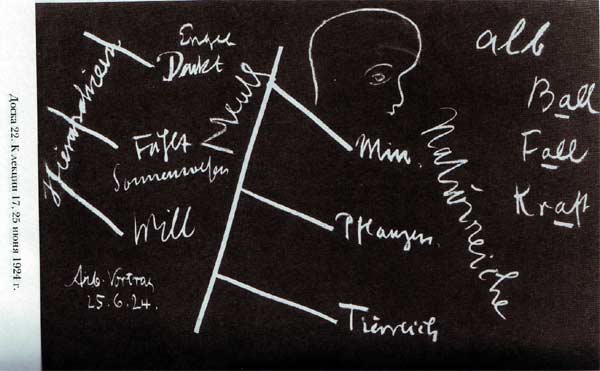 Доска 22. К лекции 17, 25 июня 1924 г.
Hierarchien
Engel
Denkt
Fühlt
Sonnenwesen
Will
Arb. Vortrag
25.6.24.
Mensch
Min.
Pflanzen.
Tierreich
Naturreiche
alb
Ball
Fall
Kraft